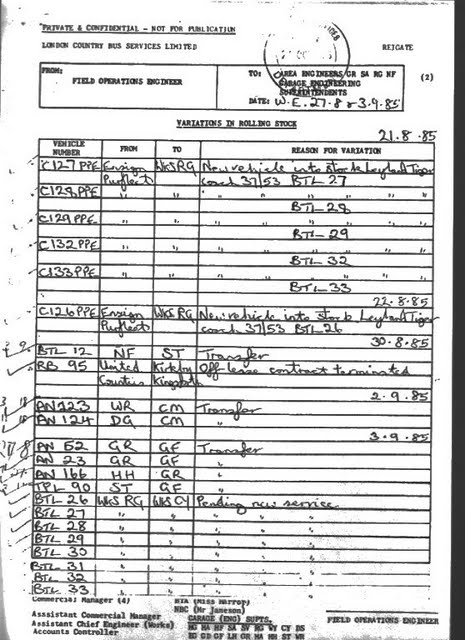 PRIVATE & CONFIDENTIAL - NOT FOR PUBLICATION
LONDON COUNTRY BUS SERVICES LIMITED REIGATE
FROM: FIELD OPERATIONS ENGINEER
TO: AREA ENGINEERS/GR SA RG NF (2)
GARAGE ENGINEERING
SUPERINTENDENTS
DATE: W.E. 27.8 & 3.9.85
VARIATIONS IN ROLLING STOCK
21.8.85
VEHICLE NUMBER FROM TO REASON FOR VARIATION
C127 PPE Ensign WKS RG New vehicle into stock Leyland Tiger
Purfleet coach 37/53 BTL 27
C128 PPE " " " " " "
BTL 28
C129 PPE " " " " " "
BTL 29
C132 PPE " " " " " "
BTL 32
C133 PPE " " " " " "
BTL 33
22.8.85
C126 PPE Ensign WKS RG New vehicle into stock Leyland Tiger
Purfleet coach 37/53 BTL 26
30.8.85
BTL 12 NF ST Transfer
RB 95 United Kirkby Off lease contract terminated
Counties
2.9.85
AN 123 WR CM Transfer
AN 124 DG CM "
3.9.85
AN 52 GR GF Transfer
AN 23 GR GF "
AN 166 HH GR "
TPL 90 ST GF "
BTL 26 WKS RG WKS CY Pending new service
BTL 27 " " " " "
BTL 28 " " " " "
BTL 29 " " " " "
BTL 30 " " " " "
BTL 31 " " " " "
BTL 32 " " " " "
BTL 33 " " " " "
Commercial Manager (4)
Assistant Commercial Manager NBC (Mr Jameson)
Assistant Chief Engineer (Works) GARAGE (ENG) SUPTS.
Accounts Controller
FIELD OPERATIONS ENGINEER